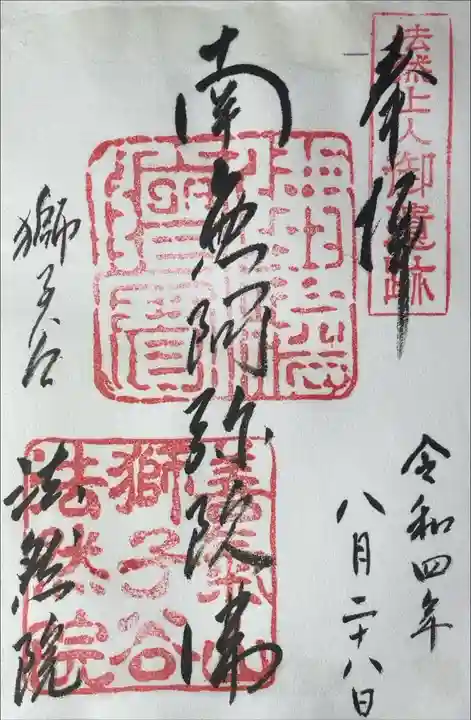 法然上人御霊跡
奉拝
令和四年
八月二十八日
南無阿弥陀佛
獅子谷
法然院
善氣山
獅子谷
法然院